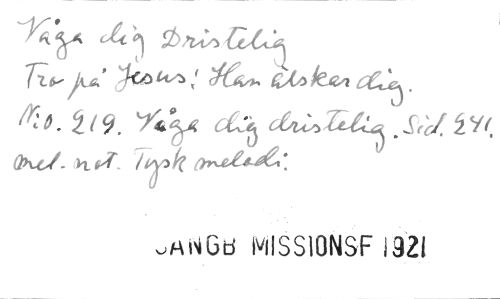 Våga dig Dristelig
Tro på Jesus! Han älskar dig.
N:o. 219. Våga dig dristelig. Sid. 241.
mel. not. Tysk melodi.
SANGB MISSIONSF 1921